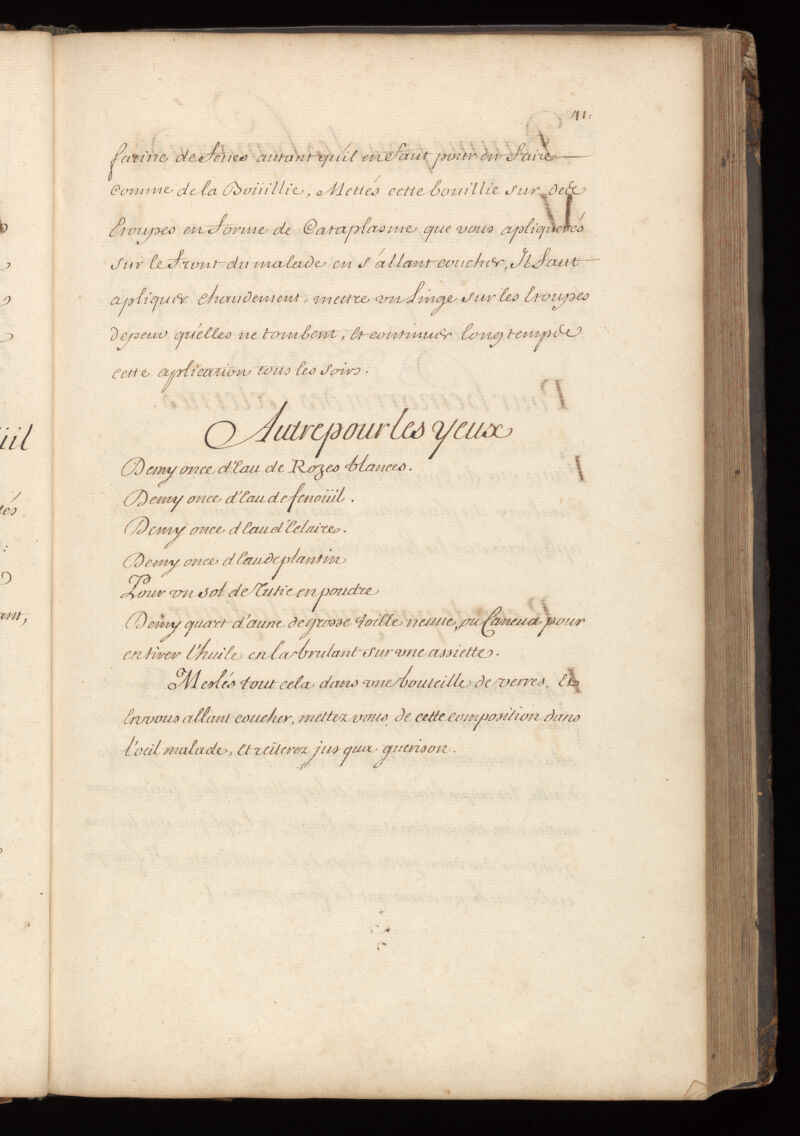 41.
farine de feves autant qu'il en faut pour en faire
comme de la Boüillie, Mettés cette bouillie sur des
Etoupes en forme de Cataplasme que vous apliquerés
sur le front du malade en s'allant coucher, Il faut
apliquer chaudement, mettre vn Linge sur les Etoupes
depeur qu'elles ne tombent, Et continuer longtemps
cette aplication tous les soirs.
Autre pour les yeux
Demy once d'Eau de Rozes blances.
Demy once d'Eau de fenoüil.
Demy once d'Eau d'Eclaire.
Demy once d'Eau de plantin
Pour vn sol de Tutie en poudre
Demy quart d'aune de grosse toille neuue, ou Caneua pour
en tirer l'huile en la brulant sur vne assiette.
Meslés tout cela dans vne bouteille de verres, Et
En vous allant coucher, mettez vous de cette composition dans
l'oeil malade, Et reiterez jusqua guerison.
üil
tés
:
ant,